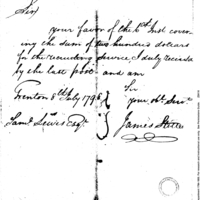 Sir
your favor of the 6th Inst cover
ing the sum of two hundred dollars
for the recruiting service I duly received
by the last post and am
Sir
Trenton 8th July 1798
your Obt Servt
Saml Lewis Esqr
James Stille